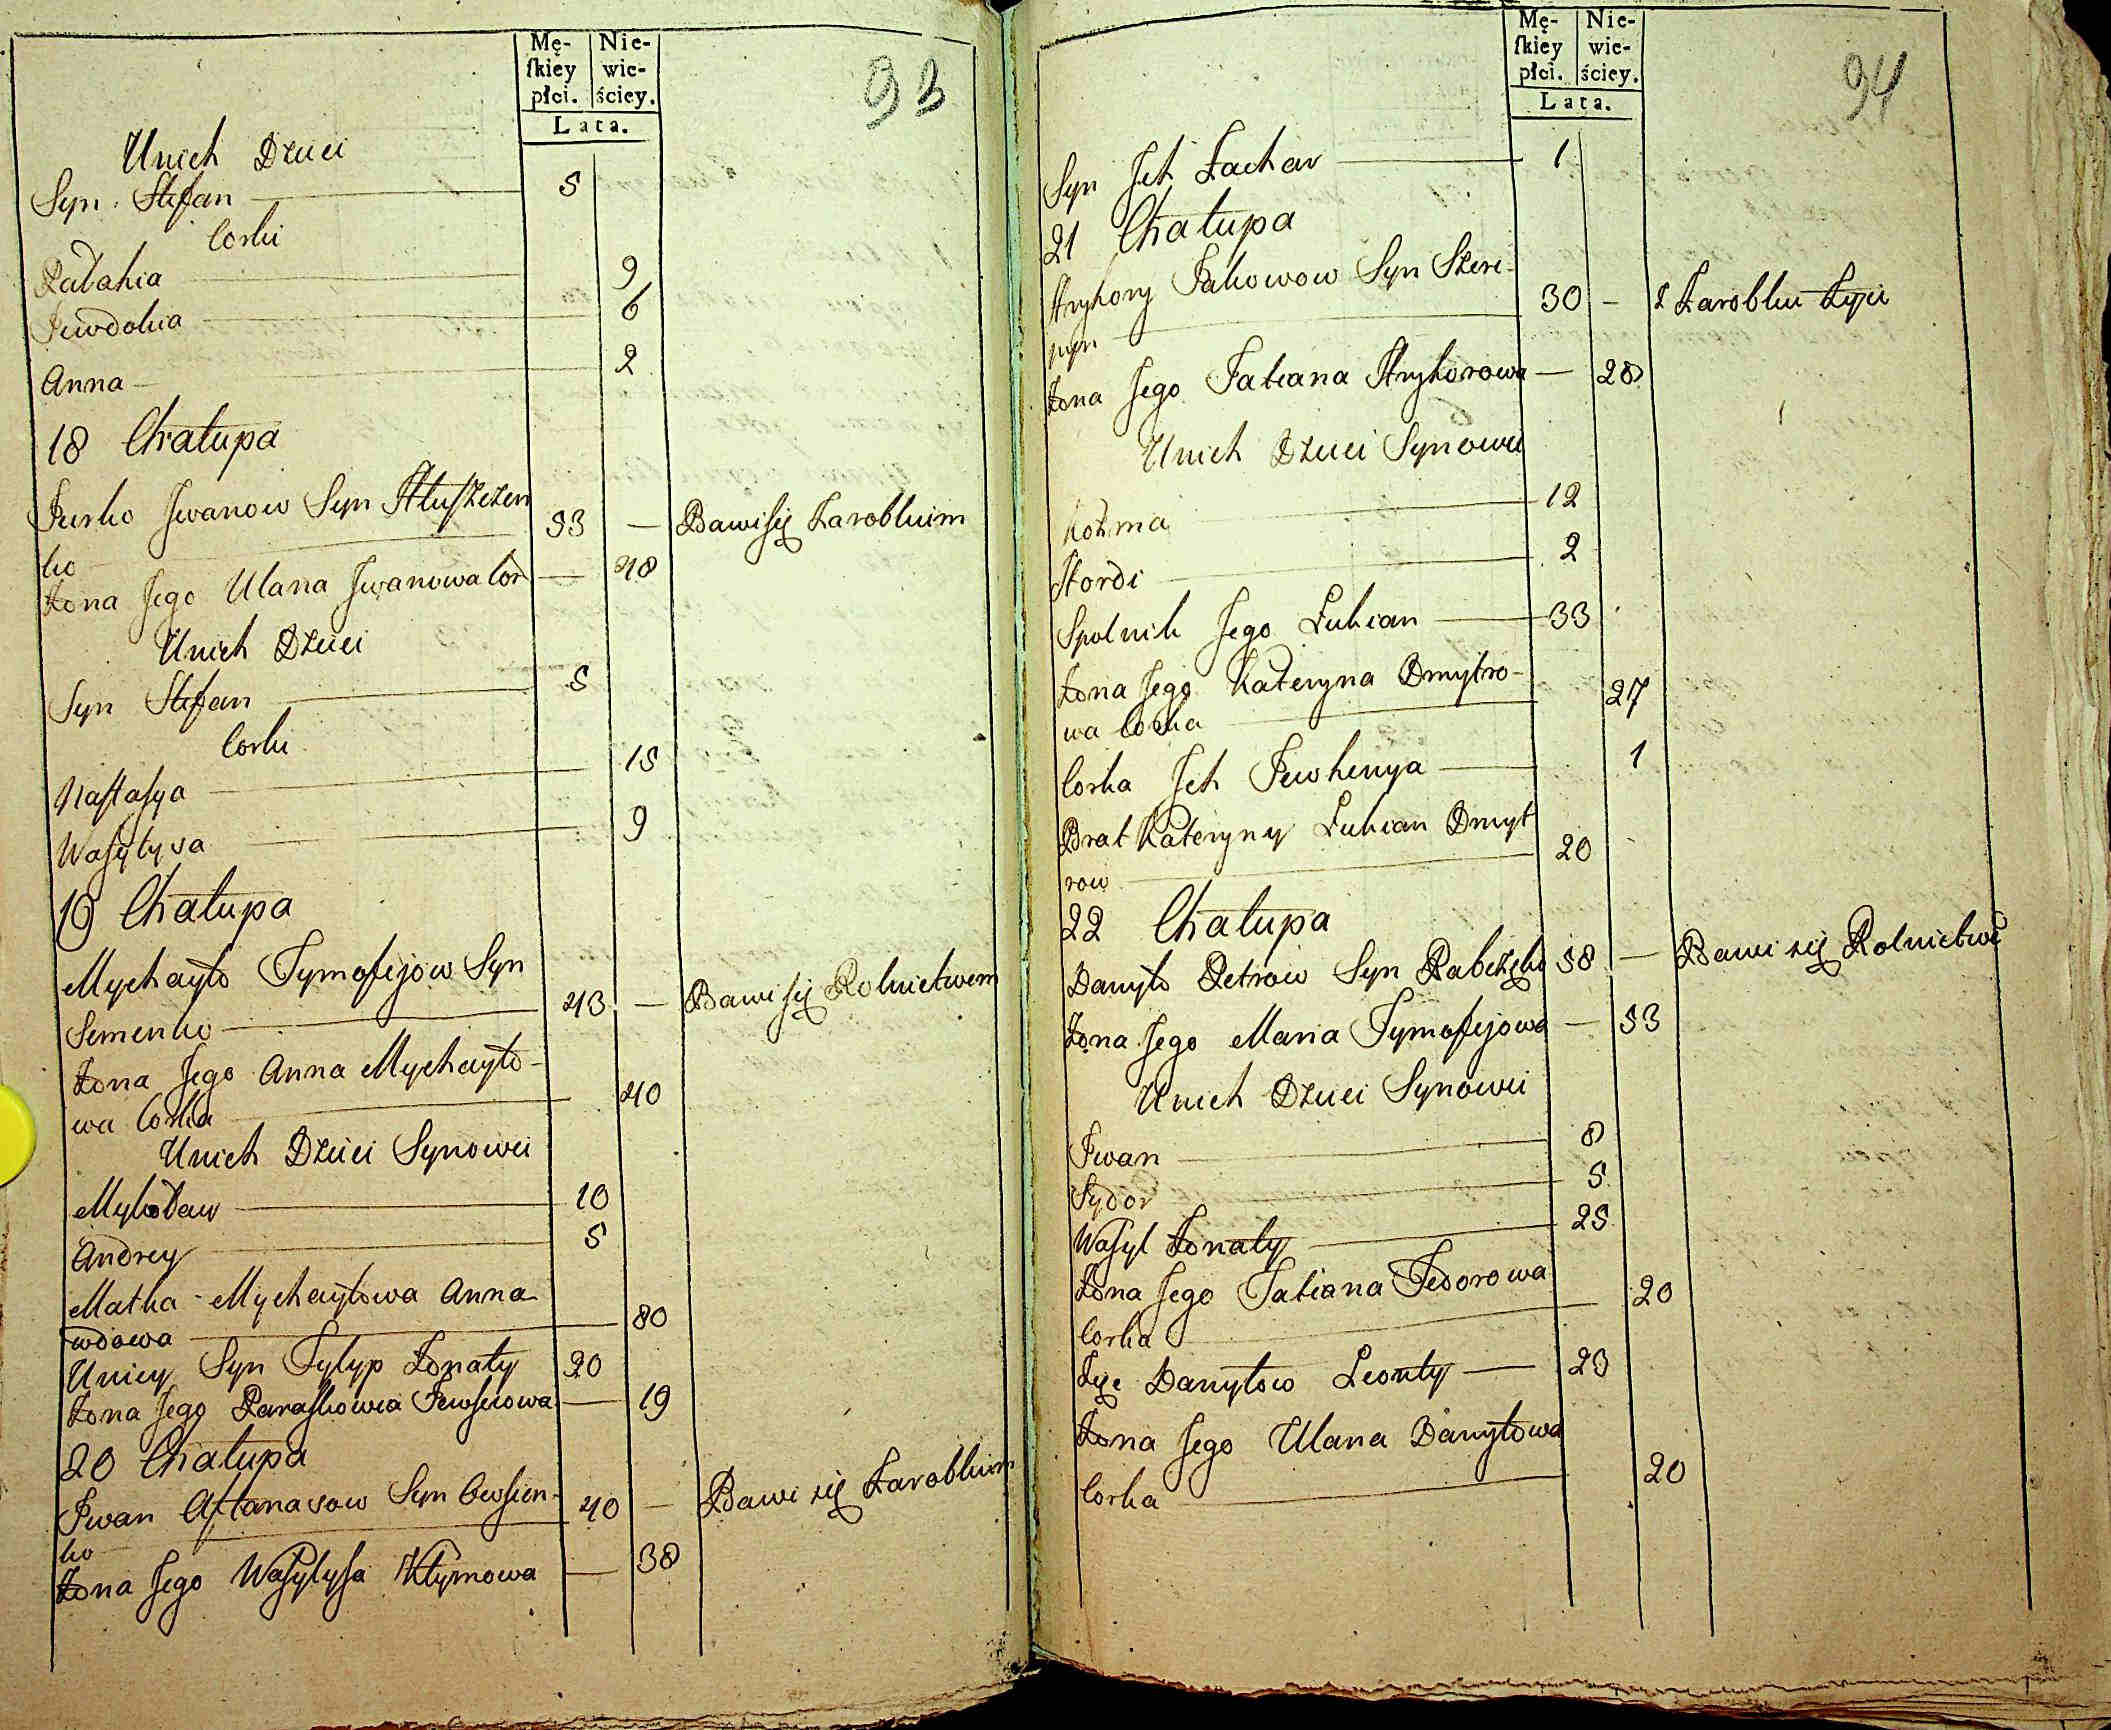 Mę- Nie-
skiey wie-
płci. ściey.
Lata.
93
Unich Dzieci
Syn Stefan 5
Corki
Pałahia 9
Jewdokia 6
Anna 2
18 Chałupa
Jurko Jwanow Syn Hłuszczen
ko 53 — Bawi się Zarobkiem
Żona Jego Ulana Jwanowa Cor — 48
Unich Dzieci
Syn Stefan 5
Corki
Nastasya 15
Wasylysa 9
19 Chałupa
Mychayło Tymofijow Syn
Semenko 43 — Bawi się Rolnictwem
Żona Jego Anna Mychayło-
wa Corka 40
Unich Dzieci Synowie
Mykoław 10
Andrey 5
Matka Mychayłowa Anna
wdowa 80
Uniey Syn Fylyp Żonaty 20
Żona Jego Paraskowia Jewsiowa — 19
20 Chałupa
Jwan Aftanasow Syn Owsien-
ko 40 — Bawi się Zarobkiem
Żona Jego Wasylysa Kłymowa — 38
Mę- Nie-
skiey wie-
płci. ściey.
Lata.
94
Syn Jch Zachar — 1
21 Chałupa
Hryhory Jakowow Syn
30 — z Zarobku Żyie
Żona Jego Tatiana Hryhorowa — 28
Unich Dzieci Synowie
Kozma 12
Hordi 2
Spolnik Jego Łukian — 33
Żona Jego Kateryna Dmytro-
wa Corka 27
Corka Jch Jewhenya — 1
Brat Kateryny Łukian Dmyt
row 20
22 Chałupa
Danyło Petrow Syn 58 — Bawi się Rolnictwe
Żona Jego Maria Tymofijowa — 53
Unich Dzieci Synowie
Jwan 8
Sydor 5
Wasyl Żonaty 25
Żona Jego Tatiana Fedorowa
Corka 20
Danyłow Leonty — 23
Żona Jego Ulana Danyłowa
Corka 20